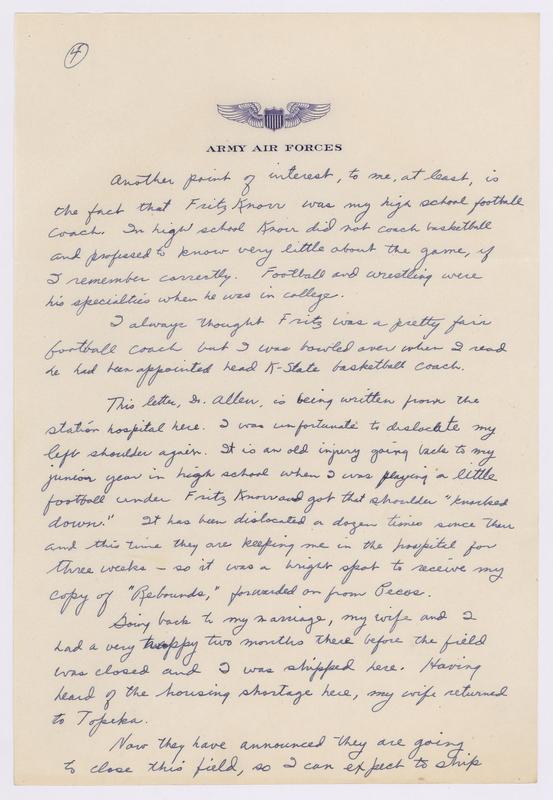 4
ARMY AIR FORCES
Another point of interest, to me, at least, is
the fact that Fritz Knorr was my high school football
coach. In high school Knorr did not coach basketball
and professed to know very little about the game, if
I remember correctly. Football and wrestling were
his specialties when he was in college.
I always thought Fritz was a pretty fair
football coach but I was bowled over when I read
he had been appointed head K-State basketball coach.
This letter, Dr. Allen, is being written from the
station hospital here. I was unfortunate to dislocate my
left shoulder again. It is an old injury going back to my
junior year in high school when I was playing a little
football under Fritz Knorr and got that shoulder "knocked
down." It has been dislocated a dozen times since then
and this time they are keeping me in the hospital for
three weeks – so it was a bright spot to receive my
copy of "Rebounds," forwarded on from Pecos.
Going back to my marriage, my wife and I
had a very happy two months there before the field
was closed and I was shipped here. Having
heard of the housing shortage here, my wife returned
to Topeka.
Now they have announced they are going
to close this field, so I can expect to ship